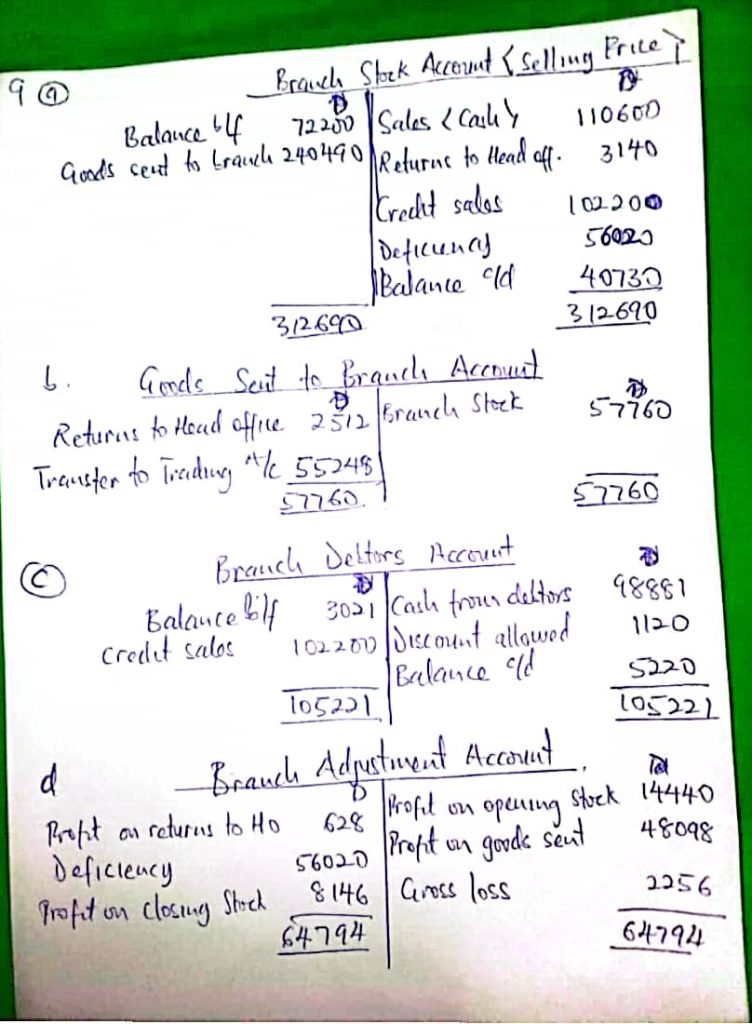 9 (a) Branch Stock Account {Selling Price}
D D
Balance b/f 72200 Sales {Cash} 110600
Goods sent to branch 240490 Returns to Head off. 3140
Credit sales 102200
Deficiency 56020
Balance c/d 40730
312690 312690
b. Goods Sent to Branch Account
D D
Returns to Head office 2512 Branch Stock 57760
Transfer to Trading A/c 55248
57760 57760
(c) Branch Debtors Account
D D
Balance b/f 3021 Cash from debtors 98881
Credit sales 102200 Discount allowed 1120
Balance c/d 5220
105221 105221
d Branch Adjustment Account
D D
Profit on returns to HO 628 Profit on opening stock 14440
Deficiency 56020 Profit on goods sent 48098
Profit on closing Stock 8146 Gross loss 2256
64794 64794